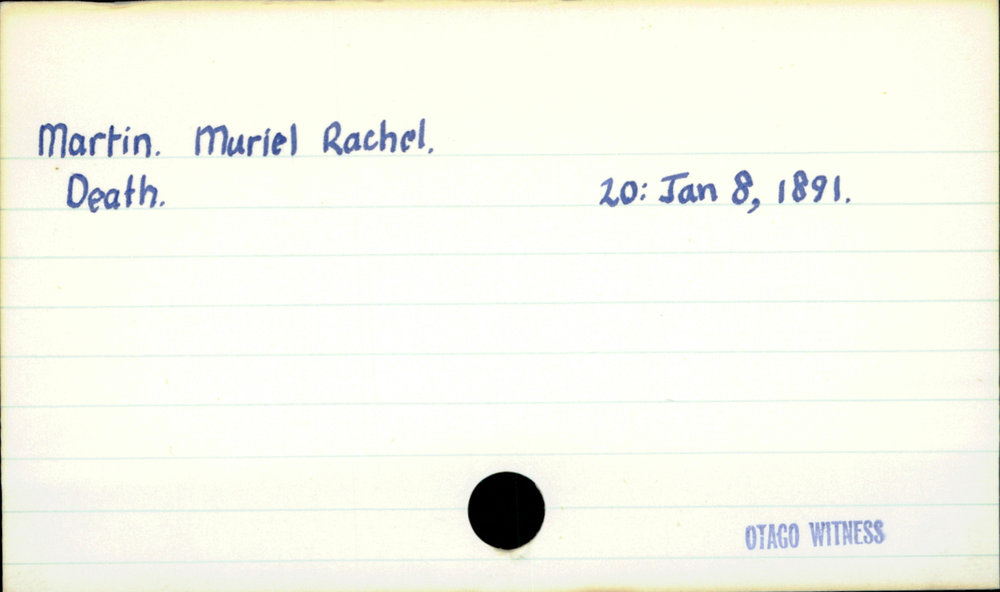 Martin. Muriel Rachel.
Death. 20: Jan 8, 1891.
OTAGO WITNESS